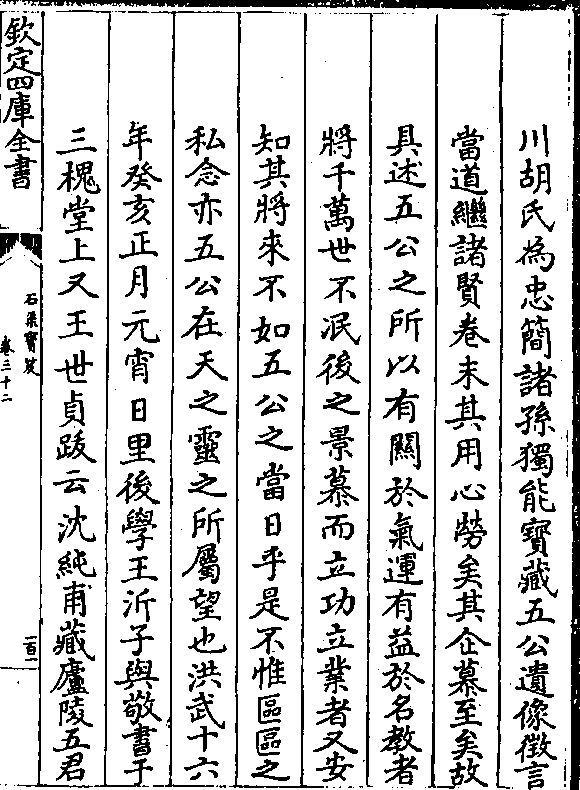 川胡氏為忠簡諸孫獨能寳藏五公遺像徴言
當道繼諸賢卷末其用心勞矣其企慕至矣故
具述五公之所以有關於氣運有益於名教者
將千萬世不泯後之景慕而立功立業者又安
知其將來不如五公之當日乎是不惟區區之
私念亦五公在天之靈之所屬望也洪武十六
年癸亥正月元宵日里後學王沂子與敬書于
三槐堂上又王世貞跋云沈純甫藏廬陵五君
欽定四庫全書
石渠寳笈
卷三十二
一百一